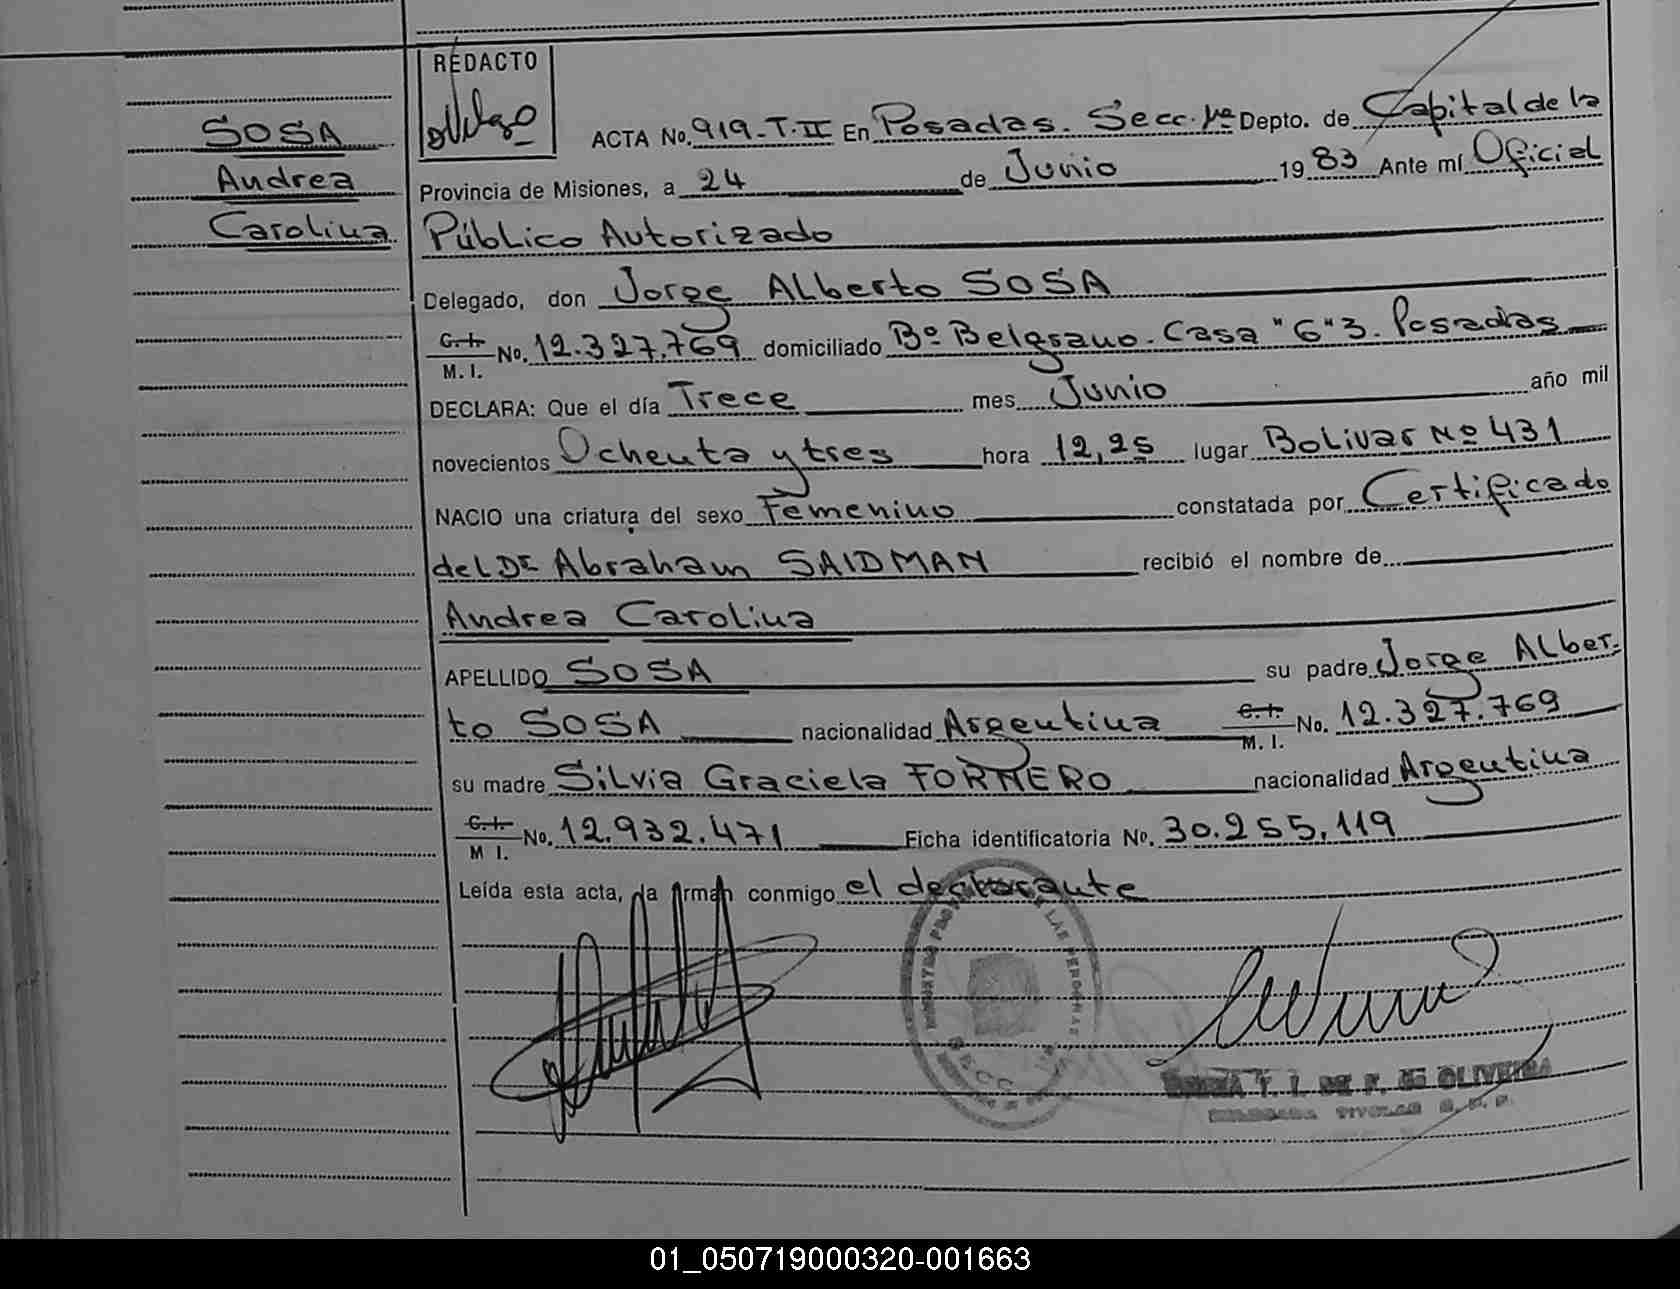 SOSA
Andrea
Carolina
REDACTO
ACTA No. 919-T.II En Posadas. Secc. 1ra Depto. de Capital de la
Provincia de Misiones, a 24 de Junio 1983 Ante mí Oficial
Público Autorizado
Delegado, don Jorge Alberto SOSA
C.I. M.I. No. 12.327.769 domiciliado Bº Belgrano. Casa "6" 3. Posadas
DECLARA: Que el día Trece mes Junio año mil
novecientos Ochenta y tres hora 12,25 lugar Bolivar Nº 431
NACIO una criatura del sexo Femenino constatada por Certificado
del Dr Abraham SAIDMAN recibió el nombre de
Andrea Carolina
APELLIDO SOSA su padre Jorge Alber-
to SOSA nacionalidad Argentina C.I. M.I. No. 12.327.769
su madre Silvia Graciela FORNERO nacionalidad Argentina
C.I. M I. No. 12.932.471 Ficha identificatoria No. 30.255.119
Leída esta acta, la firman conmigo el declarante
DE LAS PERSONAS
SECC.
T. I. DE F. DE OLIVEIRA
DELEGADA TITULAR
01_050719000320-001663